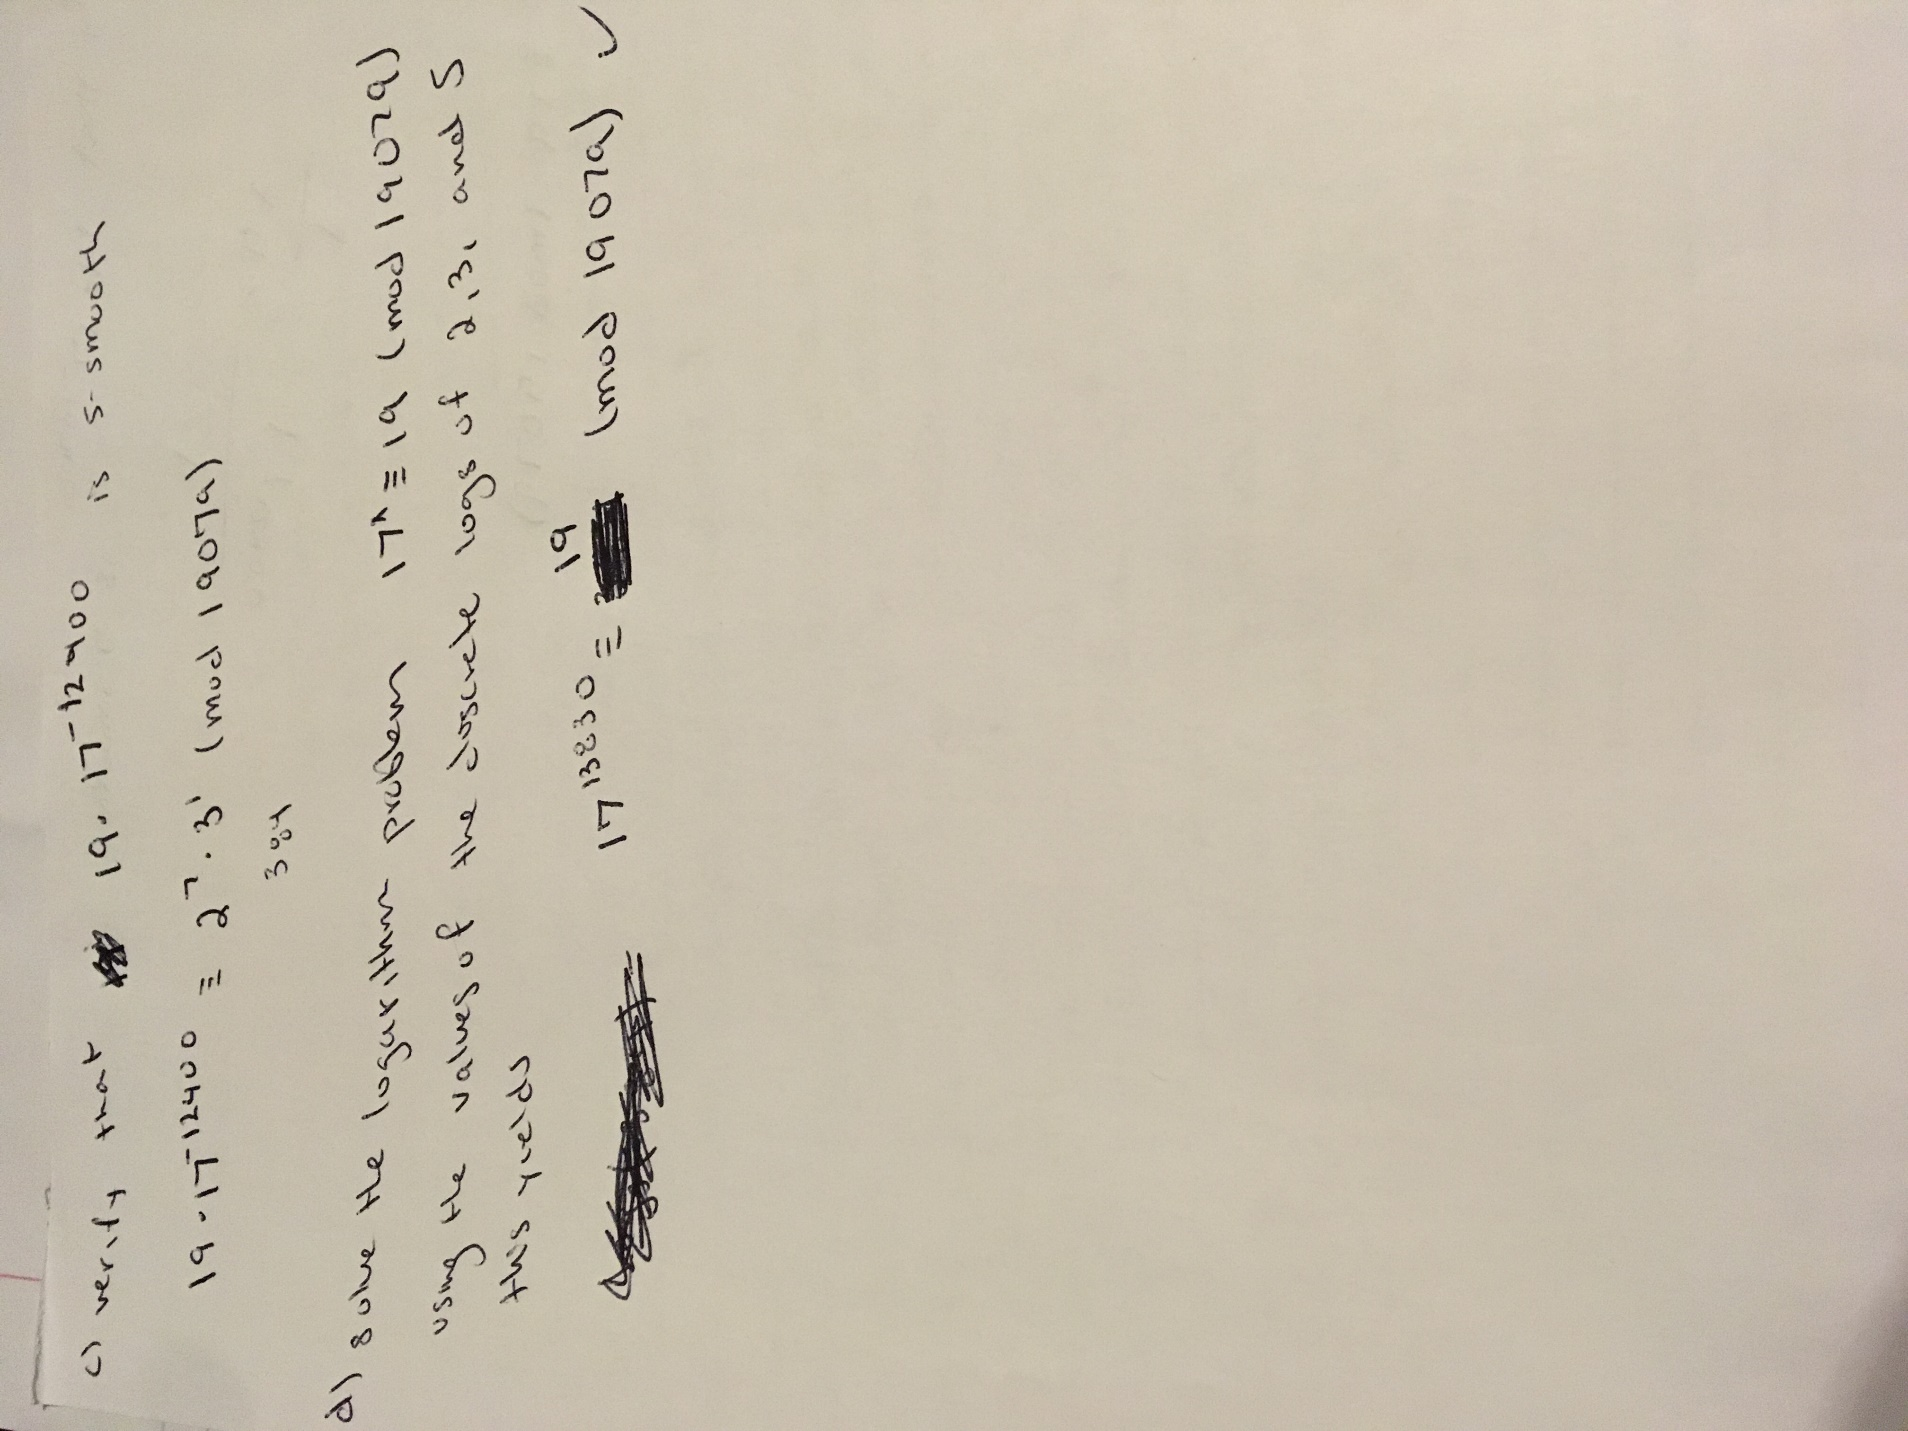 c) verify that 19 · 17^-12400 is 5-smooth
19 · 17^-12400 ≡ 2^7 · 3^1 (mod 19079)
384
d) solve the logarithm problem 17^x ≡ 19 (mod 19079)
using the values of the discrete logs of 2, 3, and 5
this yields
17^13830 ≡ 19 (mod 19079) ✓